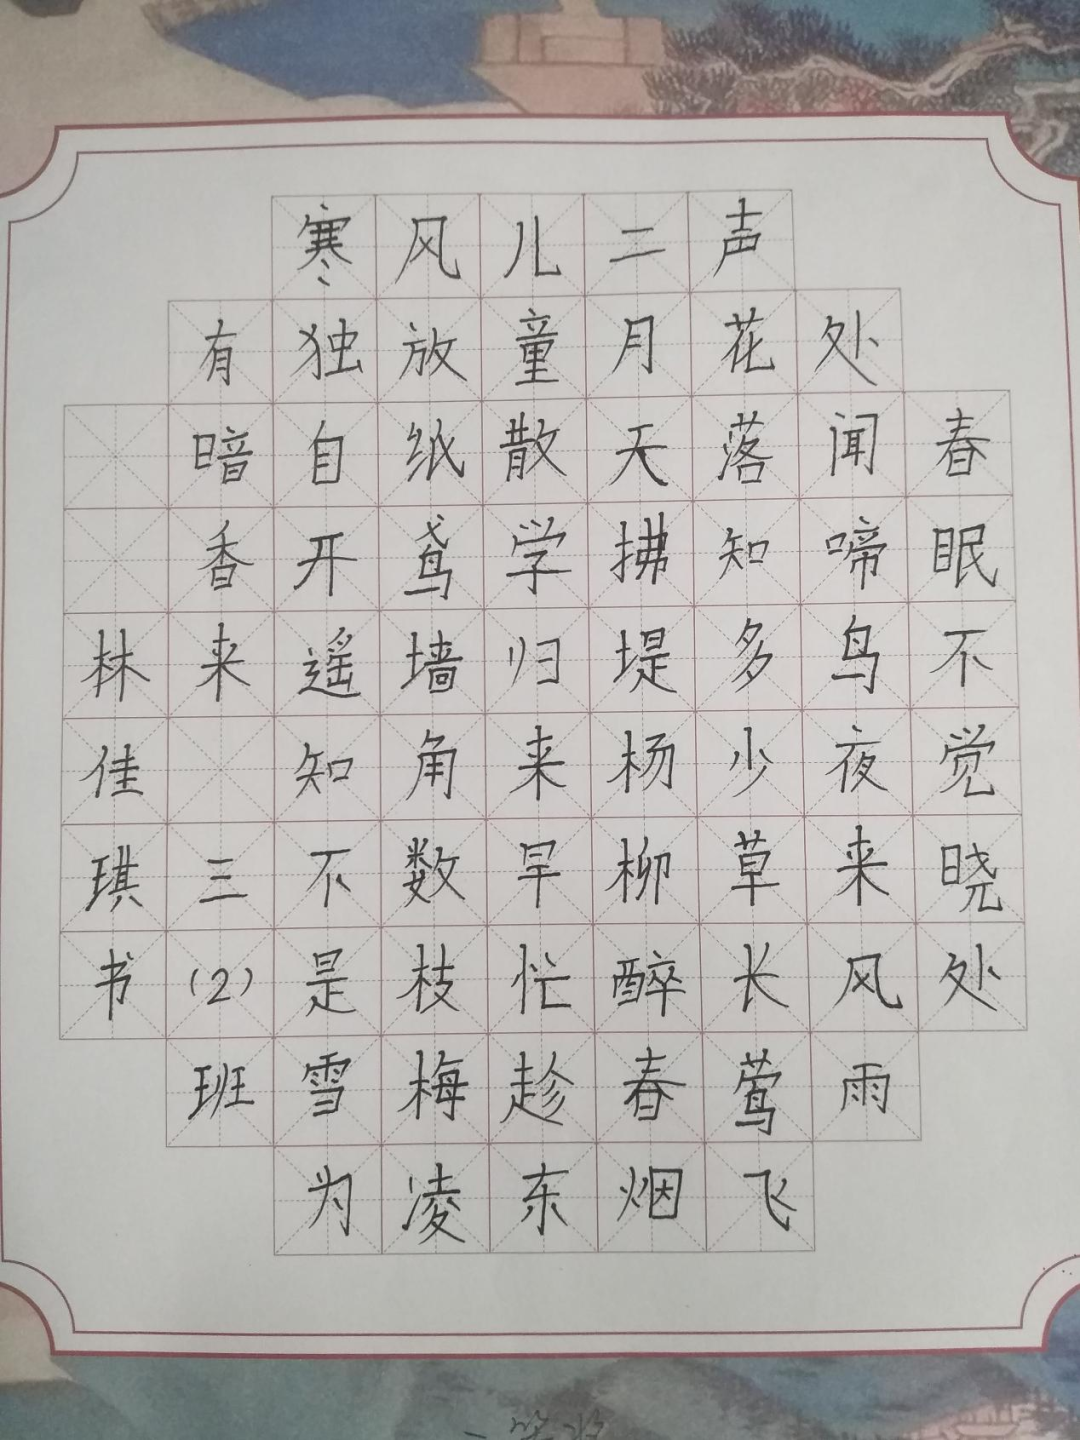 春眠不觉晓处
处闻啼鸟夜来风雨
声花落知多少草长莺飞
二月天拂堤杨柳醉春烟
儿童散学归来早忙趁东
风放纸鸢墙角数枝梅凌
寒独自开遥知不是雪为
有暗香来 三(2)班
林佳琪书